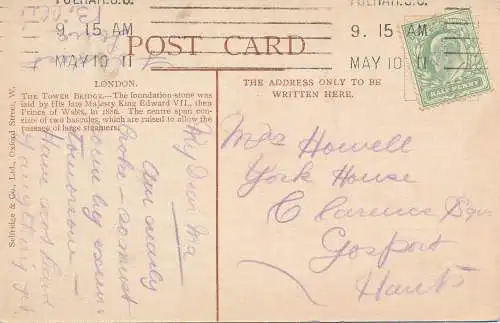 FULHAM.S.O.
9. 15 AM
MAY 10 11
9. 15 AM
MAY 10 11
POST CARD
HALFPENNY
LONDON.
THE TOWER BRIDGE.—The foundation-stone was
laid by His late Majesty King Edward VII., then
Prince of Wales, in 1886. The centre span con-
sists of two bascules, which are raised to allow the
passage of large steamers.
Selfridge & Co., Ltd., Oxford Street, W.
THE ADDRESS ONLY TO BE
WRITTEN HERE.
My Dear Ma
Am nearly
broke — so must
come by
Tomorrow —
Have not had
anything yet
Mrs Howell
York House
Clarence Sqre
Gosport
Hants